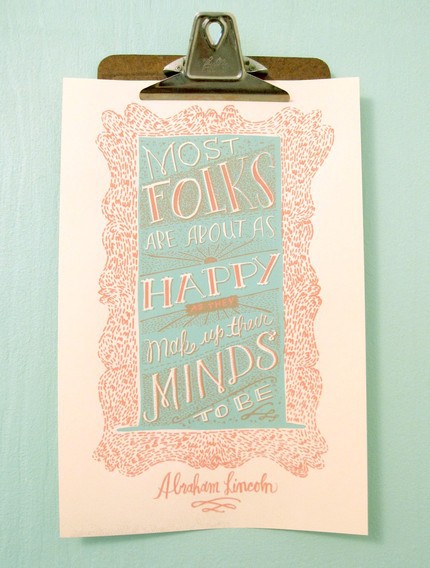 MOST
FOLKS
ARE ABOUT AS
HAPPY
AS THEY
Make up their
MINDS
TO BE
Abraham Lincoln